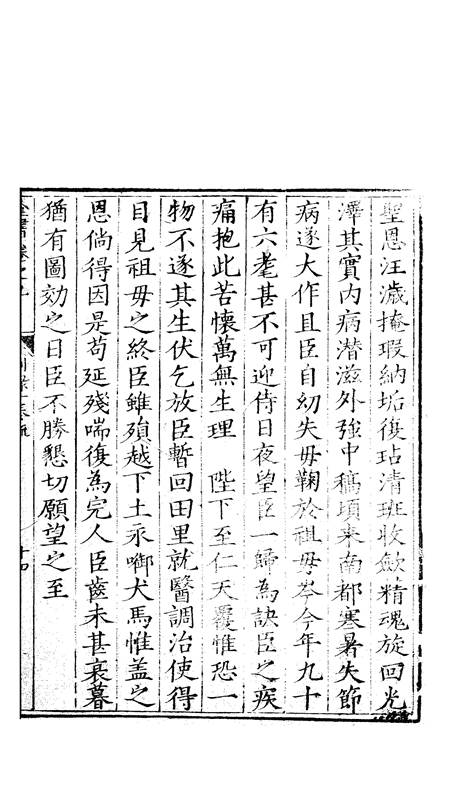 聖恩汪濊掩瑕納垢復玷清班收斂精魂旋回光
澤其實内病潛滋外強中槁頃來南都寒暑失節
病遂大作且臣自幼失毋鞠於祖毋岑今年九十
有六耄甚不可迎侍日夜望臣一歸為訣臣之疾
痛抱此苦懷萬無生理　陛下至仁天覆惟恐一
物不遂其生伏乞放臣暫回田里就醫調治使得
目見祖毋之終臣雖殞越下土永啣犬馬惟盖之
恩倘得因是苟延殘喘復為完人臣齒未甚衰暮
猶有圖効之日臣不勝懇切願望之至
十四